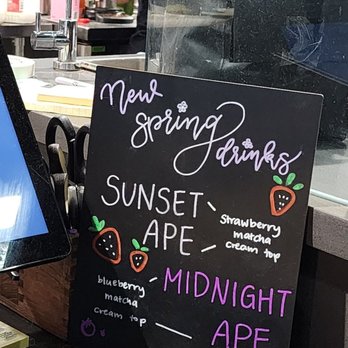 New
spring
drinks
SUNSET
APE
strawberry
matcha
cream top
MIDNIGHT
APE
blueberry
matcha
cream top